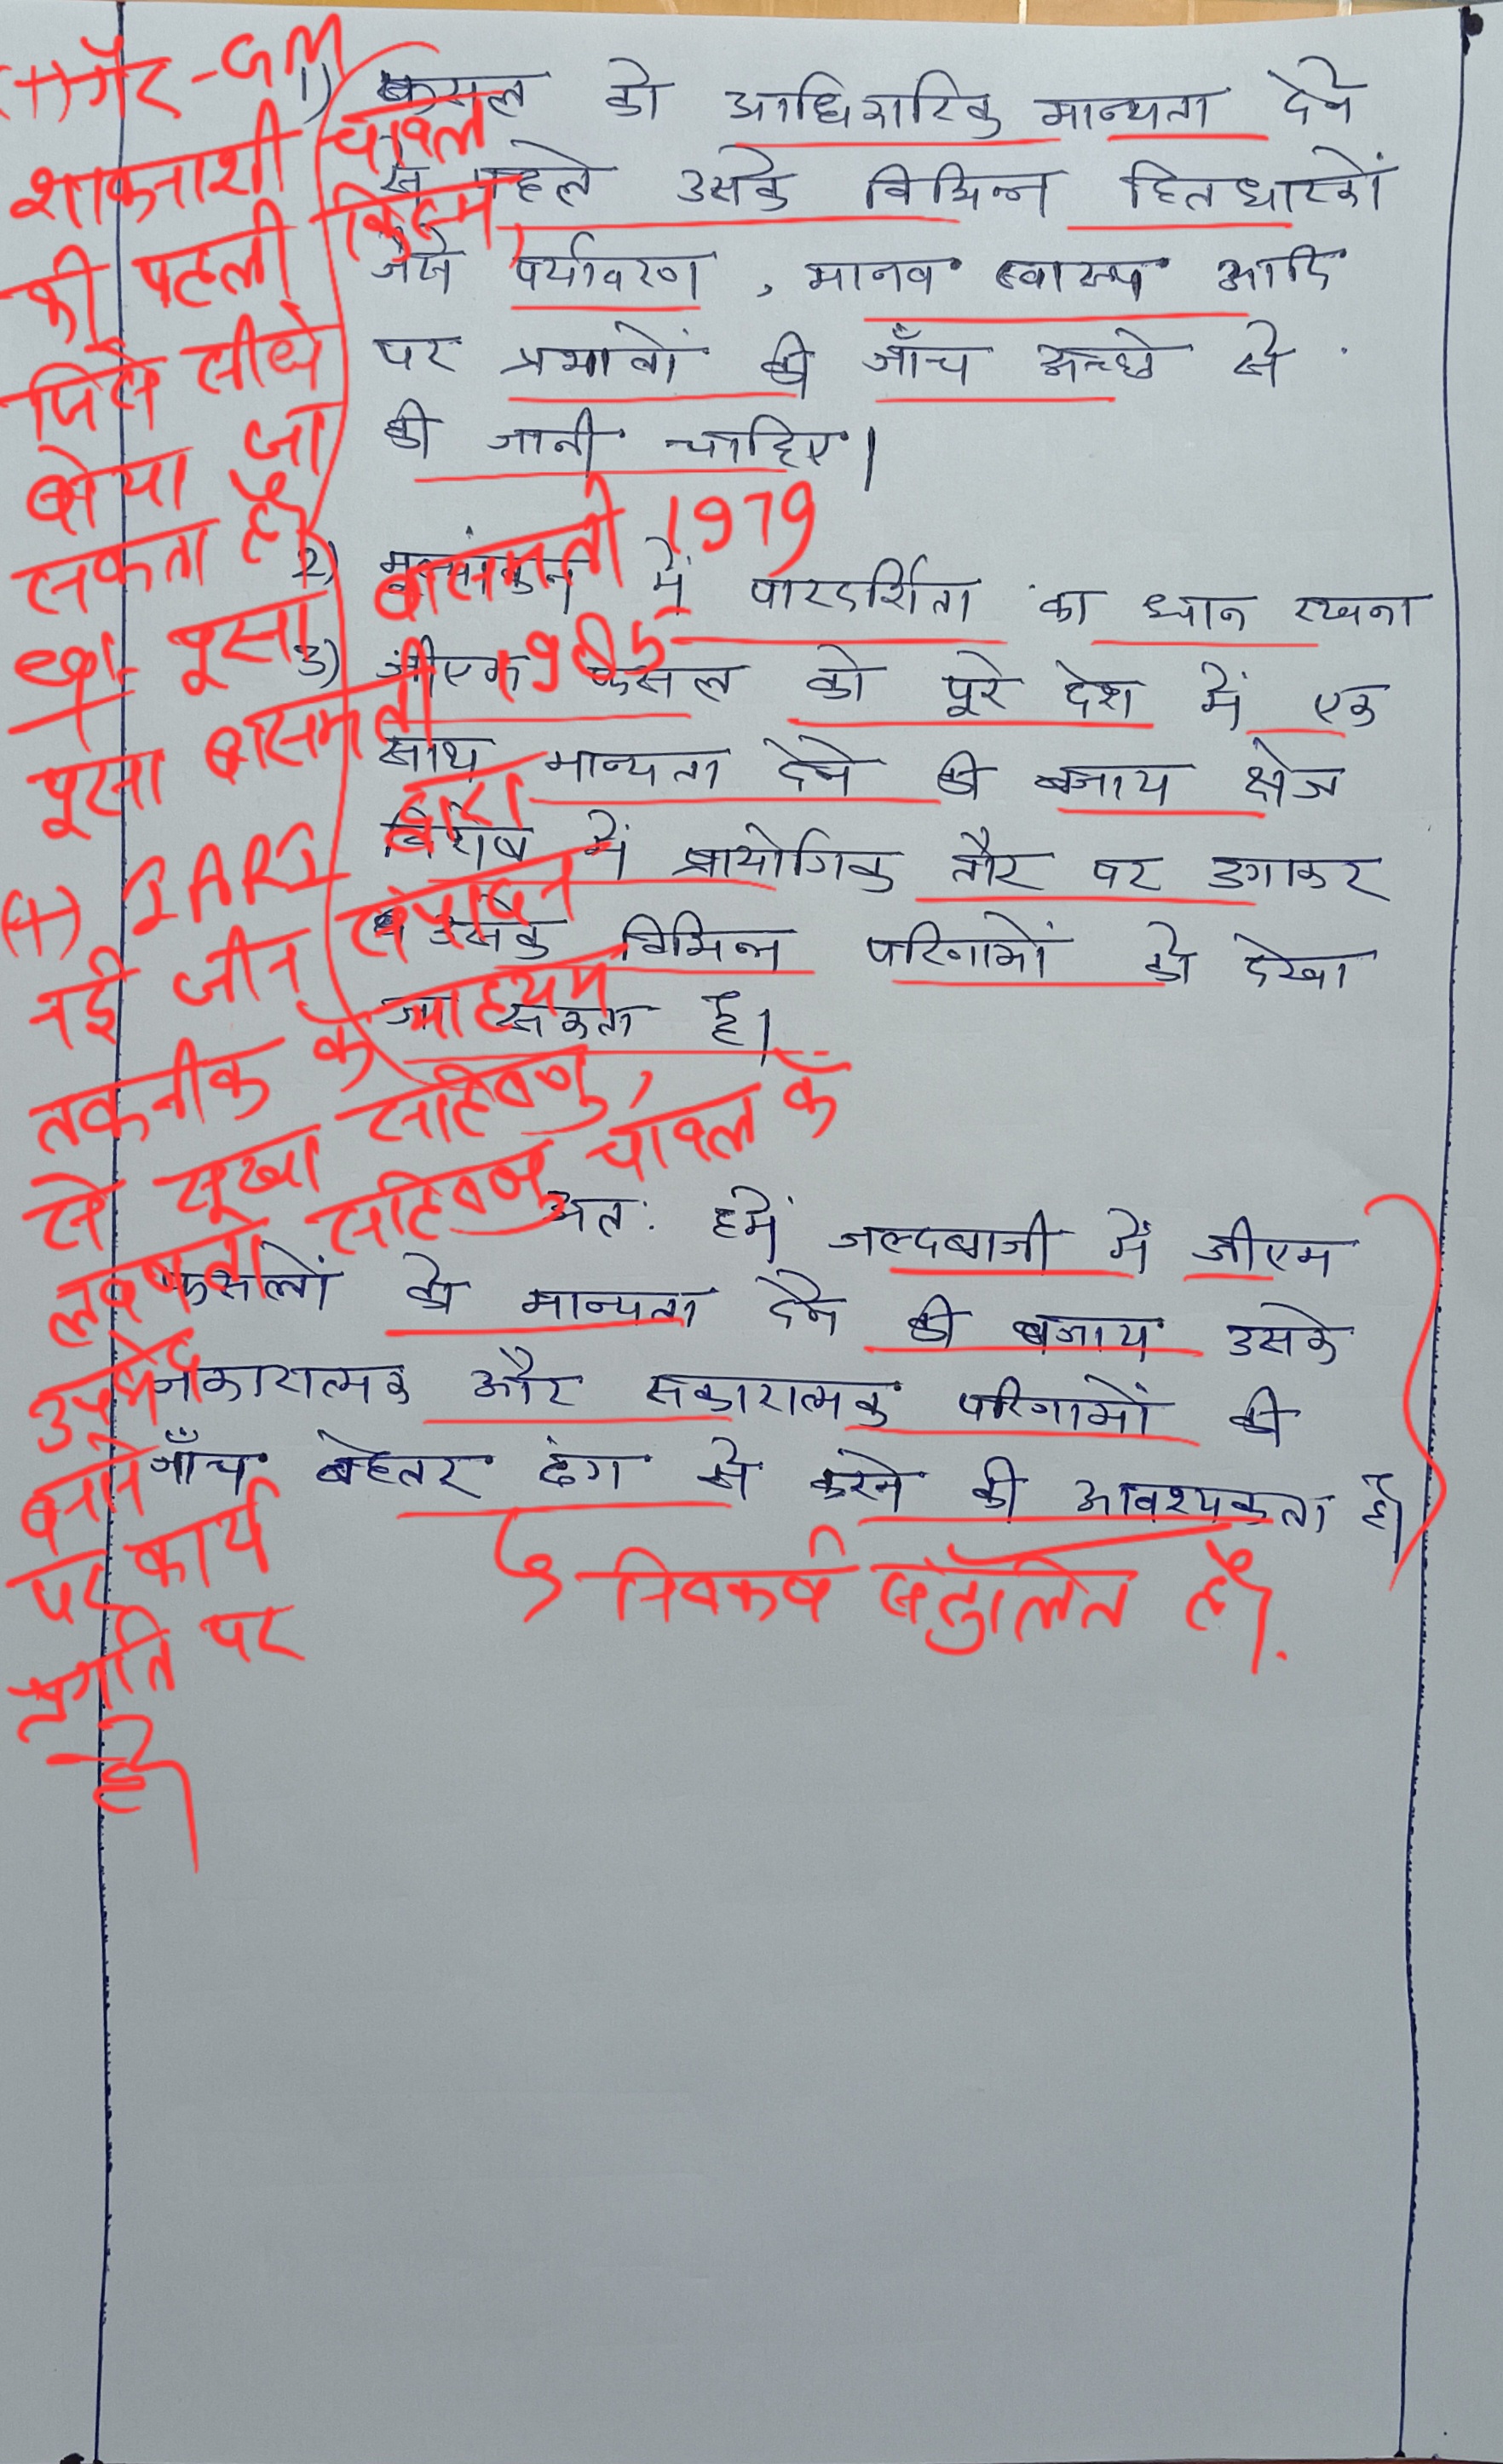 1) फसल को आधिकारिक मान्यता देने
से पहले उसके विभिन्न हितधारकों
जैसे पर्यावरण, मानव स्वास्थ्य आदि
पर प्रभावों की जाँच अच्छे से
की जानी चाहिए।
2) मूल्यांकन में पारदर्शिता का ध्यान रखना
3) जीएम फसल को पूरे देश में एक
साथ मान्यता देने की बजाय क्षेत्र
विशेष में प्रायोगिक तौर पर उगाकर
उसके विभिन्न परिणामों को देखा
जा सकता है।
अतः हमें जल्दबाजी में जीएम
फसलों को मान्यता देने की बजाय उसके
नकारात्मक और सकारात्मक परिणामों की
जाँच बेहतर ढंग से करने की आवश्यकता है।
निष्कर्ष संतुलित है।
(1) गैर-GM
शाकनाशी चावल
की पहली किस्म,
जिसे सीधे
बोया जा
सकता है।
पूसा बासमती 1979
पूसा बासमती 1985
(4) IARI द्वारा
नई जीन संपादन
तकनीक के माध्यम
से सूखा सहिष्णु,
लवणता सहिष्णु चावल के
उपभेद
बनाने
पर कार्य
प्रगति पर
है।